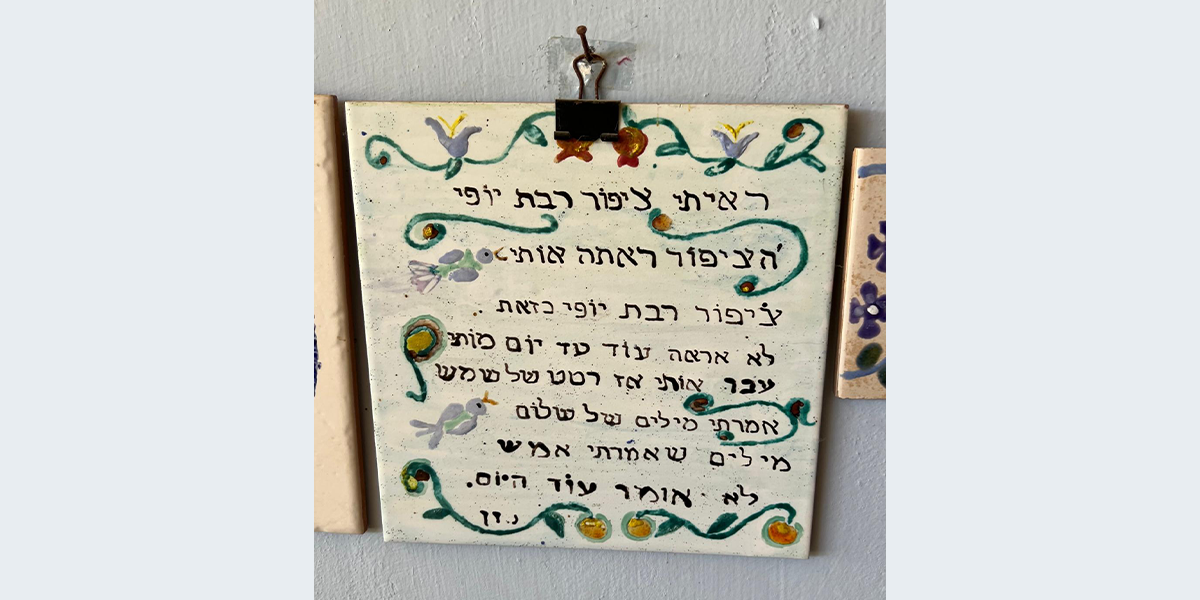 ראיתי ציפור רבת יופי
הציפור ראתה אותי
ציפור רבת יופי כזאת
לא אראה עוד עד יום מותי
עבר אותי אז רטט של שמש
אמרתי מילים של שלום
מילים שאמרתי אמש
לא אומר עוד היום.
נ. זך